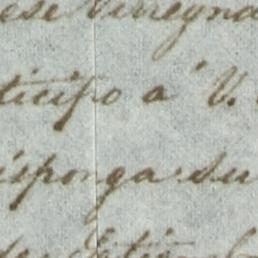 ese Virreyna
ticipo a V.
isponga su